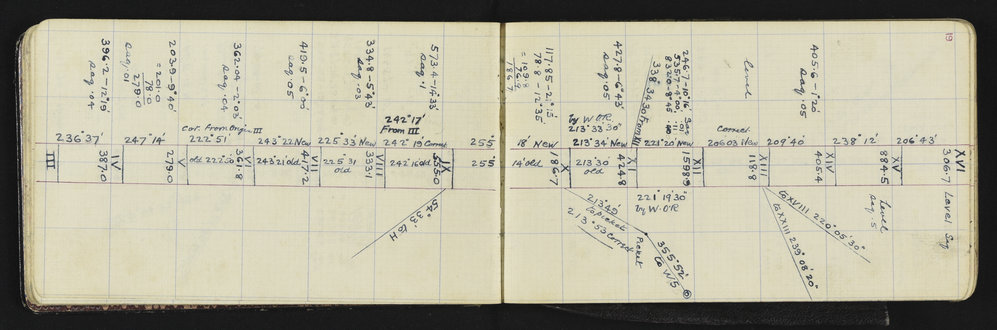 19
396.2 - 12°19'
Sag .04
203.9 - 9°40'
= 201.0
78.0
279.0
Sag .01
362.04 - 2°03'
Sag .04
419.5 - 6°00'
Sag .05
334.8 - 5°43'
Sag .03
573.4 - 14°33'
Sag .1
242°17'
From III
236°37'
247°14'
Cor. From Origin III
222°51'
243°22 New
225°33 New
242°19 Correct
255
III
387.0
IV
279.0
V
old 222°50
361.8
VI
243°21 old
417.2
VII
225°31
old
333.1
VIII
242°16 old
555.0
IX
255
54°33' to H
117.85 - 2°15'
78.8 - 12°35'
= 109.8
76.9
186.7
427.8 - 6°43'
Sag .05
by W.OR
213°33'30"
338°34'30 From III
246.7 - 10°16' Sag
535.7 - 4°00'
832.0 - 8°45'
Level
405.6 - 1°20'
Sag .05
18' New
213°34 New
221°20 New
Correct
206°03 New
209°40'
238°12'
206°43'
14' old
186.7
X
213°30'
old
424.8
XI
1598.9
XII
118.8
XIII
405.4
XIV
884.5
XV
306.7
XVI
Level
Sag
Level
Sag .5
221°19'30"
by W.OR
213°49'
to picket
213°53 Correct
Picket
355°52'
to W/5
to XVIII 220°05'30"
to XXIII 239°08'20"